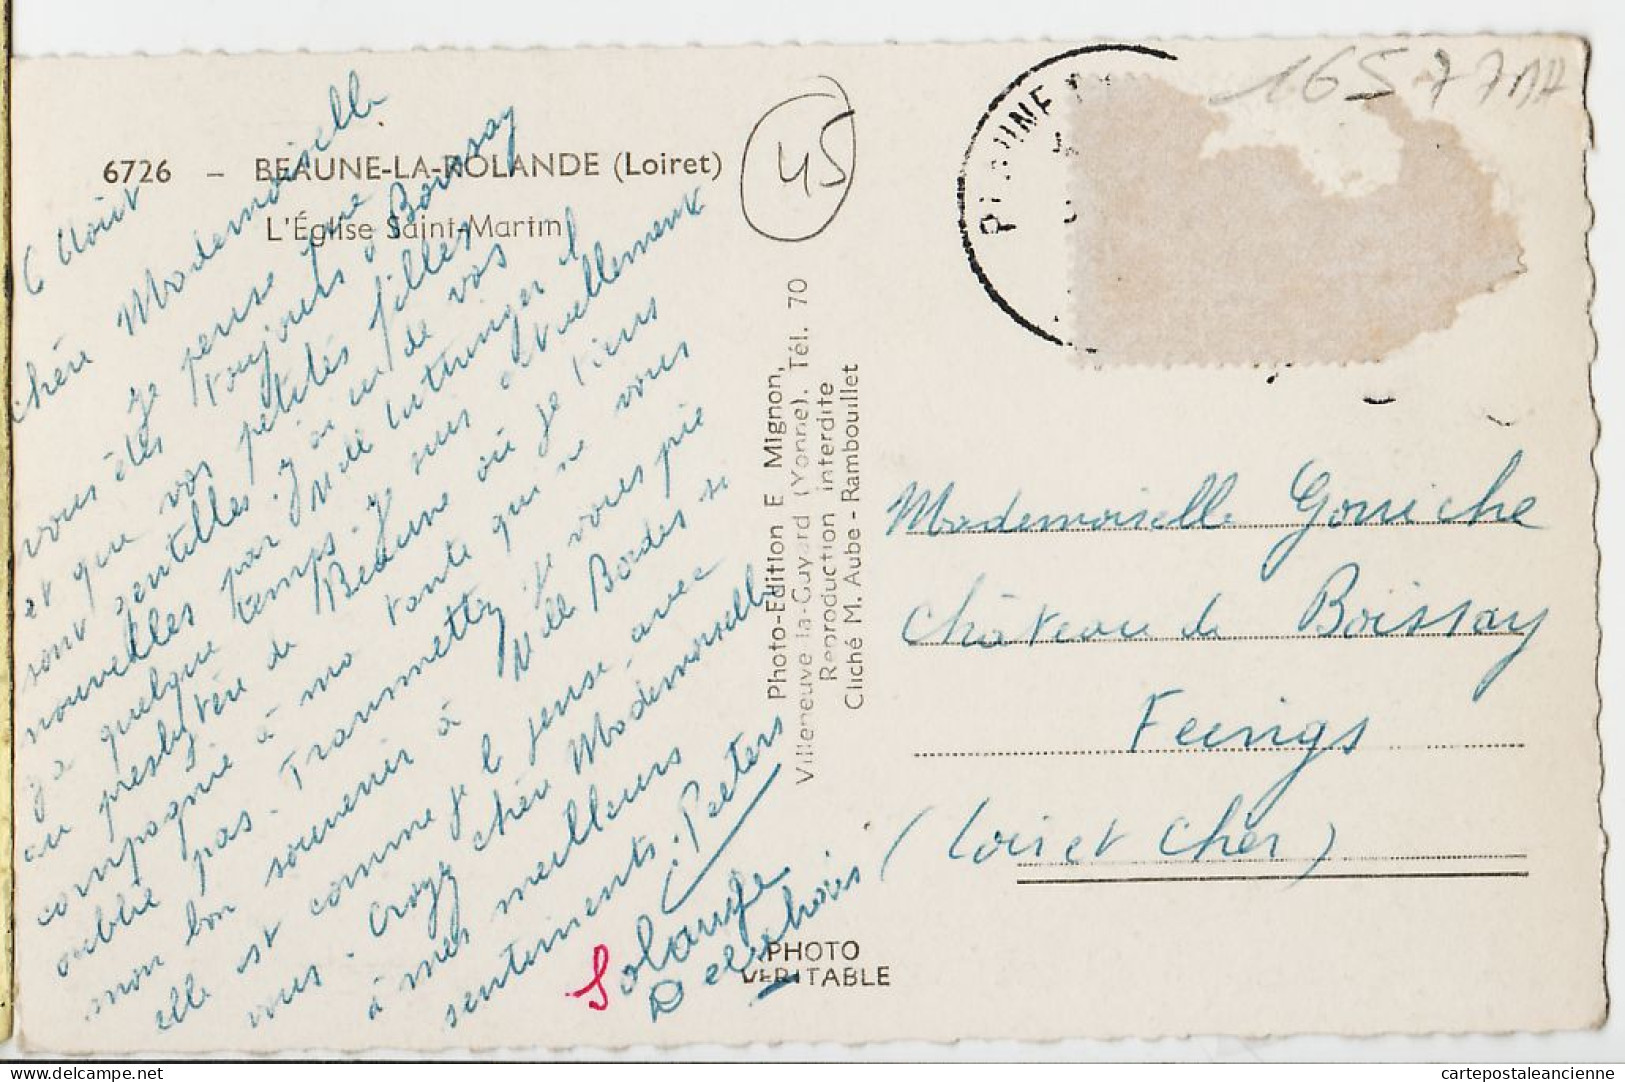 16577MA
6726 – BEAUNE-LA-ROLANDE (Loiret)
L'Église Saint-Martin
45
6 Août
Chère Mademoiselle
Je pense que
vous êtes toujours à Boissay
et que vos petites filles
sont gentilles. J'ai eu de vos
nouvelles par Melle il
y a quelque temps. Je suis actuellement
au presbytère de Beaune où je tiens
compagnie à ma tante qui ne vous
oublie pas. Transmettez je vous prie
mon bon souvenir à Melle Bordes si
elle est comme je le pense avec
vous. Croyez chère Mademoiselle
à mes meilleurs
sentiments. Peeters
Solange
Photo-Edition E. Mignon,
Villeneuve-la-Guyard (Yonne). Tél. 70
Reproduction interdite
Cliché M. Aube - Rambouillet
PHOTO
VERITABLE
Mademoiselle Gouiche
Château de Boissay
Feings
(Loir et Cher)
delcampe.net
cartepostaleancienne